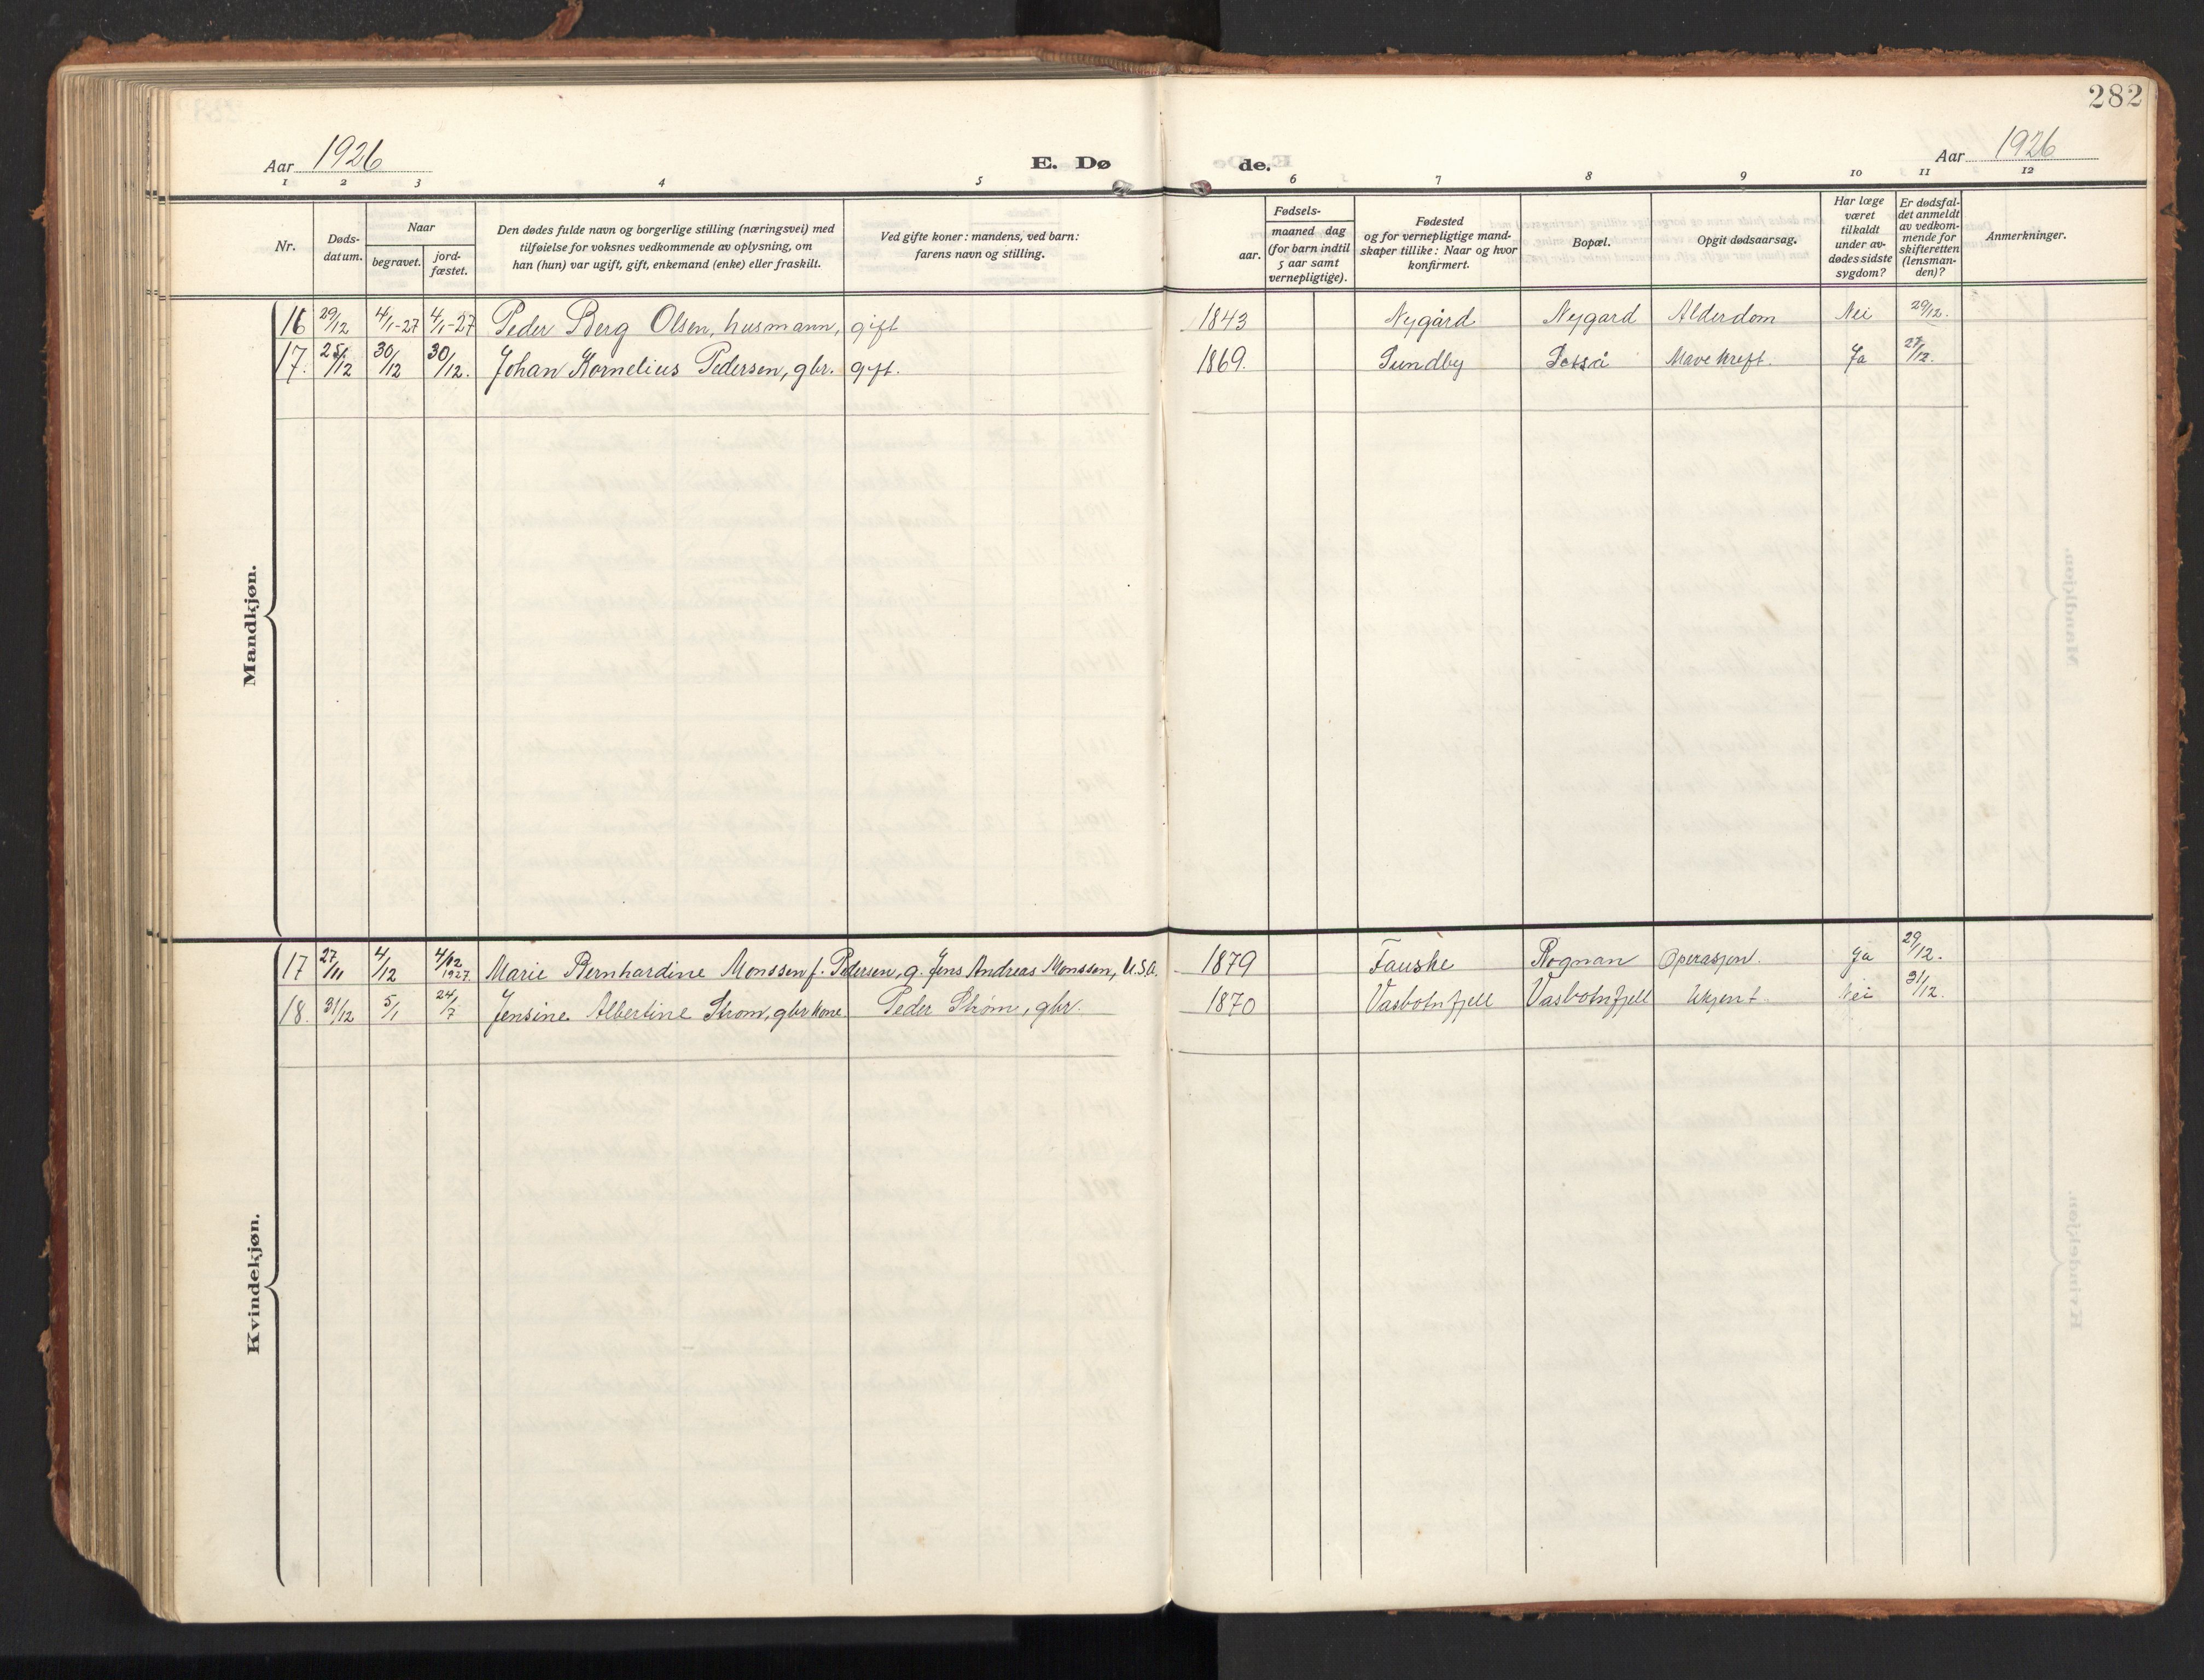 282
Aar 1926
E. Døde.
Aar 1926
1 2 3 4 5 6 7 8 9 10 11 12
Nr.
Døds-
datum.
Naar
begravet.
jord-
fæstet.
Den dødes fulde navn og borgerlige stilling (næringsvei) med
tilføielse for voksnes vedkommende av oplysning, om
han (hun) var ugift, gift, enkemand (enke) eller fraskilt.
Ved gifte koner: mandens, ved barn:
farens navn og stilling.
Fødsels-
aar.
maaned dag
(for barn indtil
5 aar samt
vernepligtige).
Fødested
og for vernepligtige mand-
skaper tillike: Naar og hvor
konfirmert.
Bopæl.
Opgit dødsaarsag.
Har læge
været
tilkaldt
under av-
dødes sidste
sygdom?
Er dødsfal-
det anmeldt
av vedkom-
mende for
skifteretten
(lensman-
den)?
Anmerkninger.
Mandkjøn.
16 29/12 4/1-27 4/1-27 Peder Berg Olsen, husmann, gift 1843 Nygård Nygard Alderdom Nei 29/12.
17. 25/12 30/12 30/12. Johan Kornelius Pedersen, gbr. gift. 1869. Sundby Mavekreft. Ja 27/12.
Kvindekjøn.
17 27/11 4/12 1927. Marie Bernhardine Monssen f. Pedersen, g. Jens Andreas Monssen, U.S.A. 1879 Fauske Rognan Operasjon. Ja 29/12.
18. 31/12 5/1 24/7 Jensine Albertine Strøm, gbr kone Peder Strøm, gbr. 1870 Vasbotnfjell Vasbotnfjell Ukjent Nei 31/12.